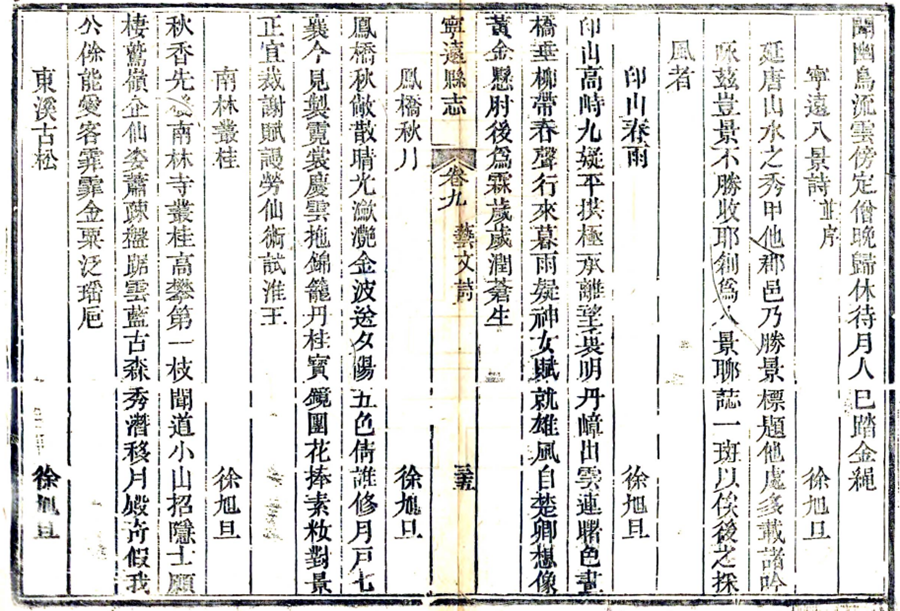 闢幽鳥流雲傍定僧晚歸休待月人已踏金繩
寧遠八景詩並序 徐旭旦
延唐山水之秀甲他郡邑乃勝景標題他處多載諸吟
咏茲豈景不勝收耶創爲八景聊誌一斑以俟後之採
風者
印山春雨 徐旭旦
印山高峙九疑平拱極承離望裏明丹嶂出雲連曙色畫
橋垂柳帶春聲行來暮雨疑神女賦就雄風自楚卿想像
黃金懸肘後爲霖歲歲潤蒼生
寧遠縣志 卷九 藝文詩 三五
鳳橋秋月 徐旭旦
鳳橋秋敞散晴光瀲灔金波送夕陽五色倩誰修月戶七
襄今見製霓裳慶雲拖錦籠丹桂寶鏡團花捧素妝對景
正宜裁謝賦謾勞仙術試淮王
南林叢桂 徐旭旦
秋香先南林寺叢桂高攀第一枝聞道小山招隱士願
棲鷲嶺企仙姿蕭疎盤踞雲藍古森秀潛移月殿奇假我
公餘能愛客霏霏金粟泛瑤巵
東溪古松 徐旭旦